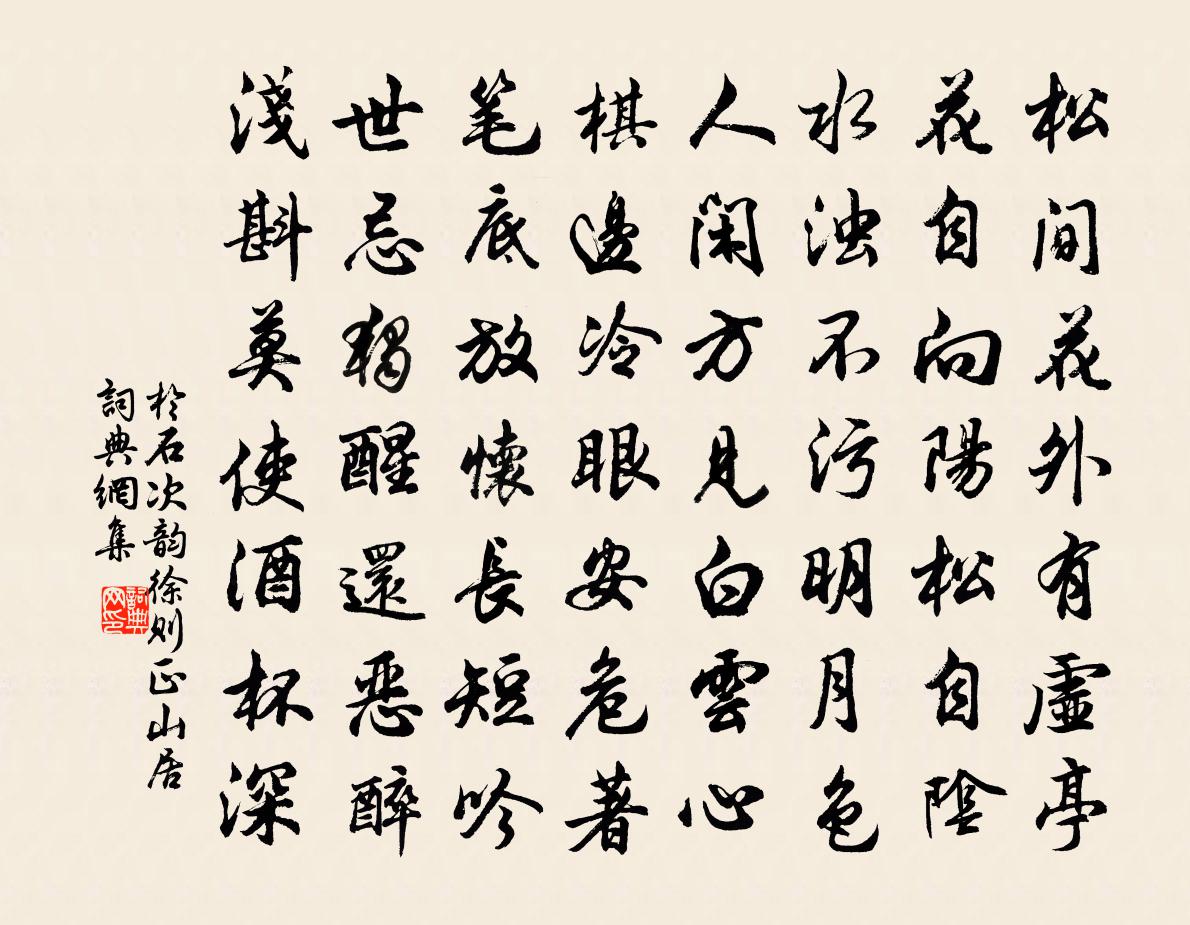 松間花外有虛亭
花自向陽松自陰
水浊不污明月色
人闲方見白雲心
棋邊冷眼安危著
笔底放懷長短吟
世忌獨醒還惡醉
淺斟莫使酒杯深
於石次韵徐则正山居
詞典網集
詞典网印